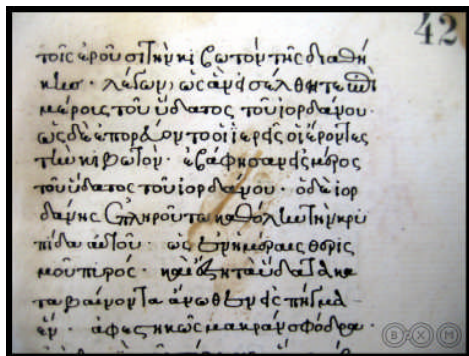 42
τοῖς ἐροῦσι τὴν κιβωτὸν τῆς διαθή
κης · λέγων, ὡς ἂν εἰσέλθητε ἐπὶ
μέροις τοῦ ὕδατος τοῦ ἰορδάνου ·
ὡς δὲ ἐπορεύοντο οἱ ἱερεῖς οἱ ἔροντες
τὴν κιβωτὸν · ἐβάφησαν εἰς μέρος
τοῦ ὕδατος τοῦ ἰορδάνου · ὁ δὲ ἰορ
δάνης ἐπληροῦτο καθόλην τὴν κρυ
πίδα αὐτοῦ · ὡς ἐν ἡμέραις θερισ
μοῦ πυρός · καὶ ἔστη τὰ ὕδατα τὰ κα
ταβαίνοντα ἄνωθεν εἰς πῆγμα
ἓν · ἀφεστηκὼς μακρὰν σφόδρα ·